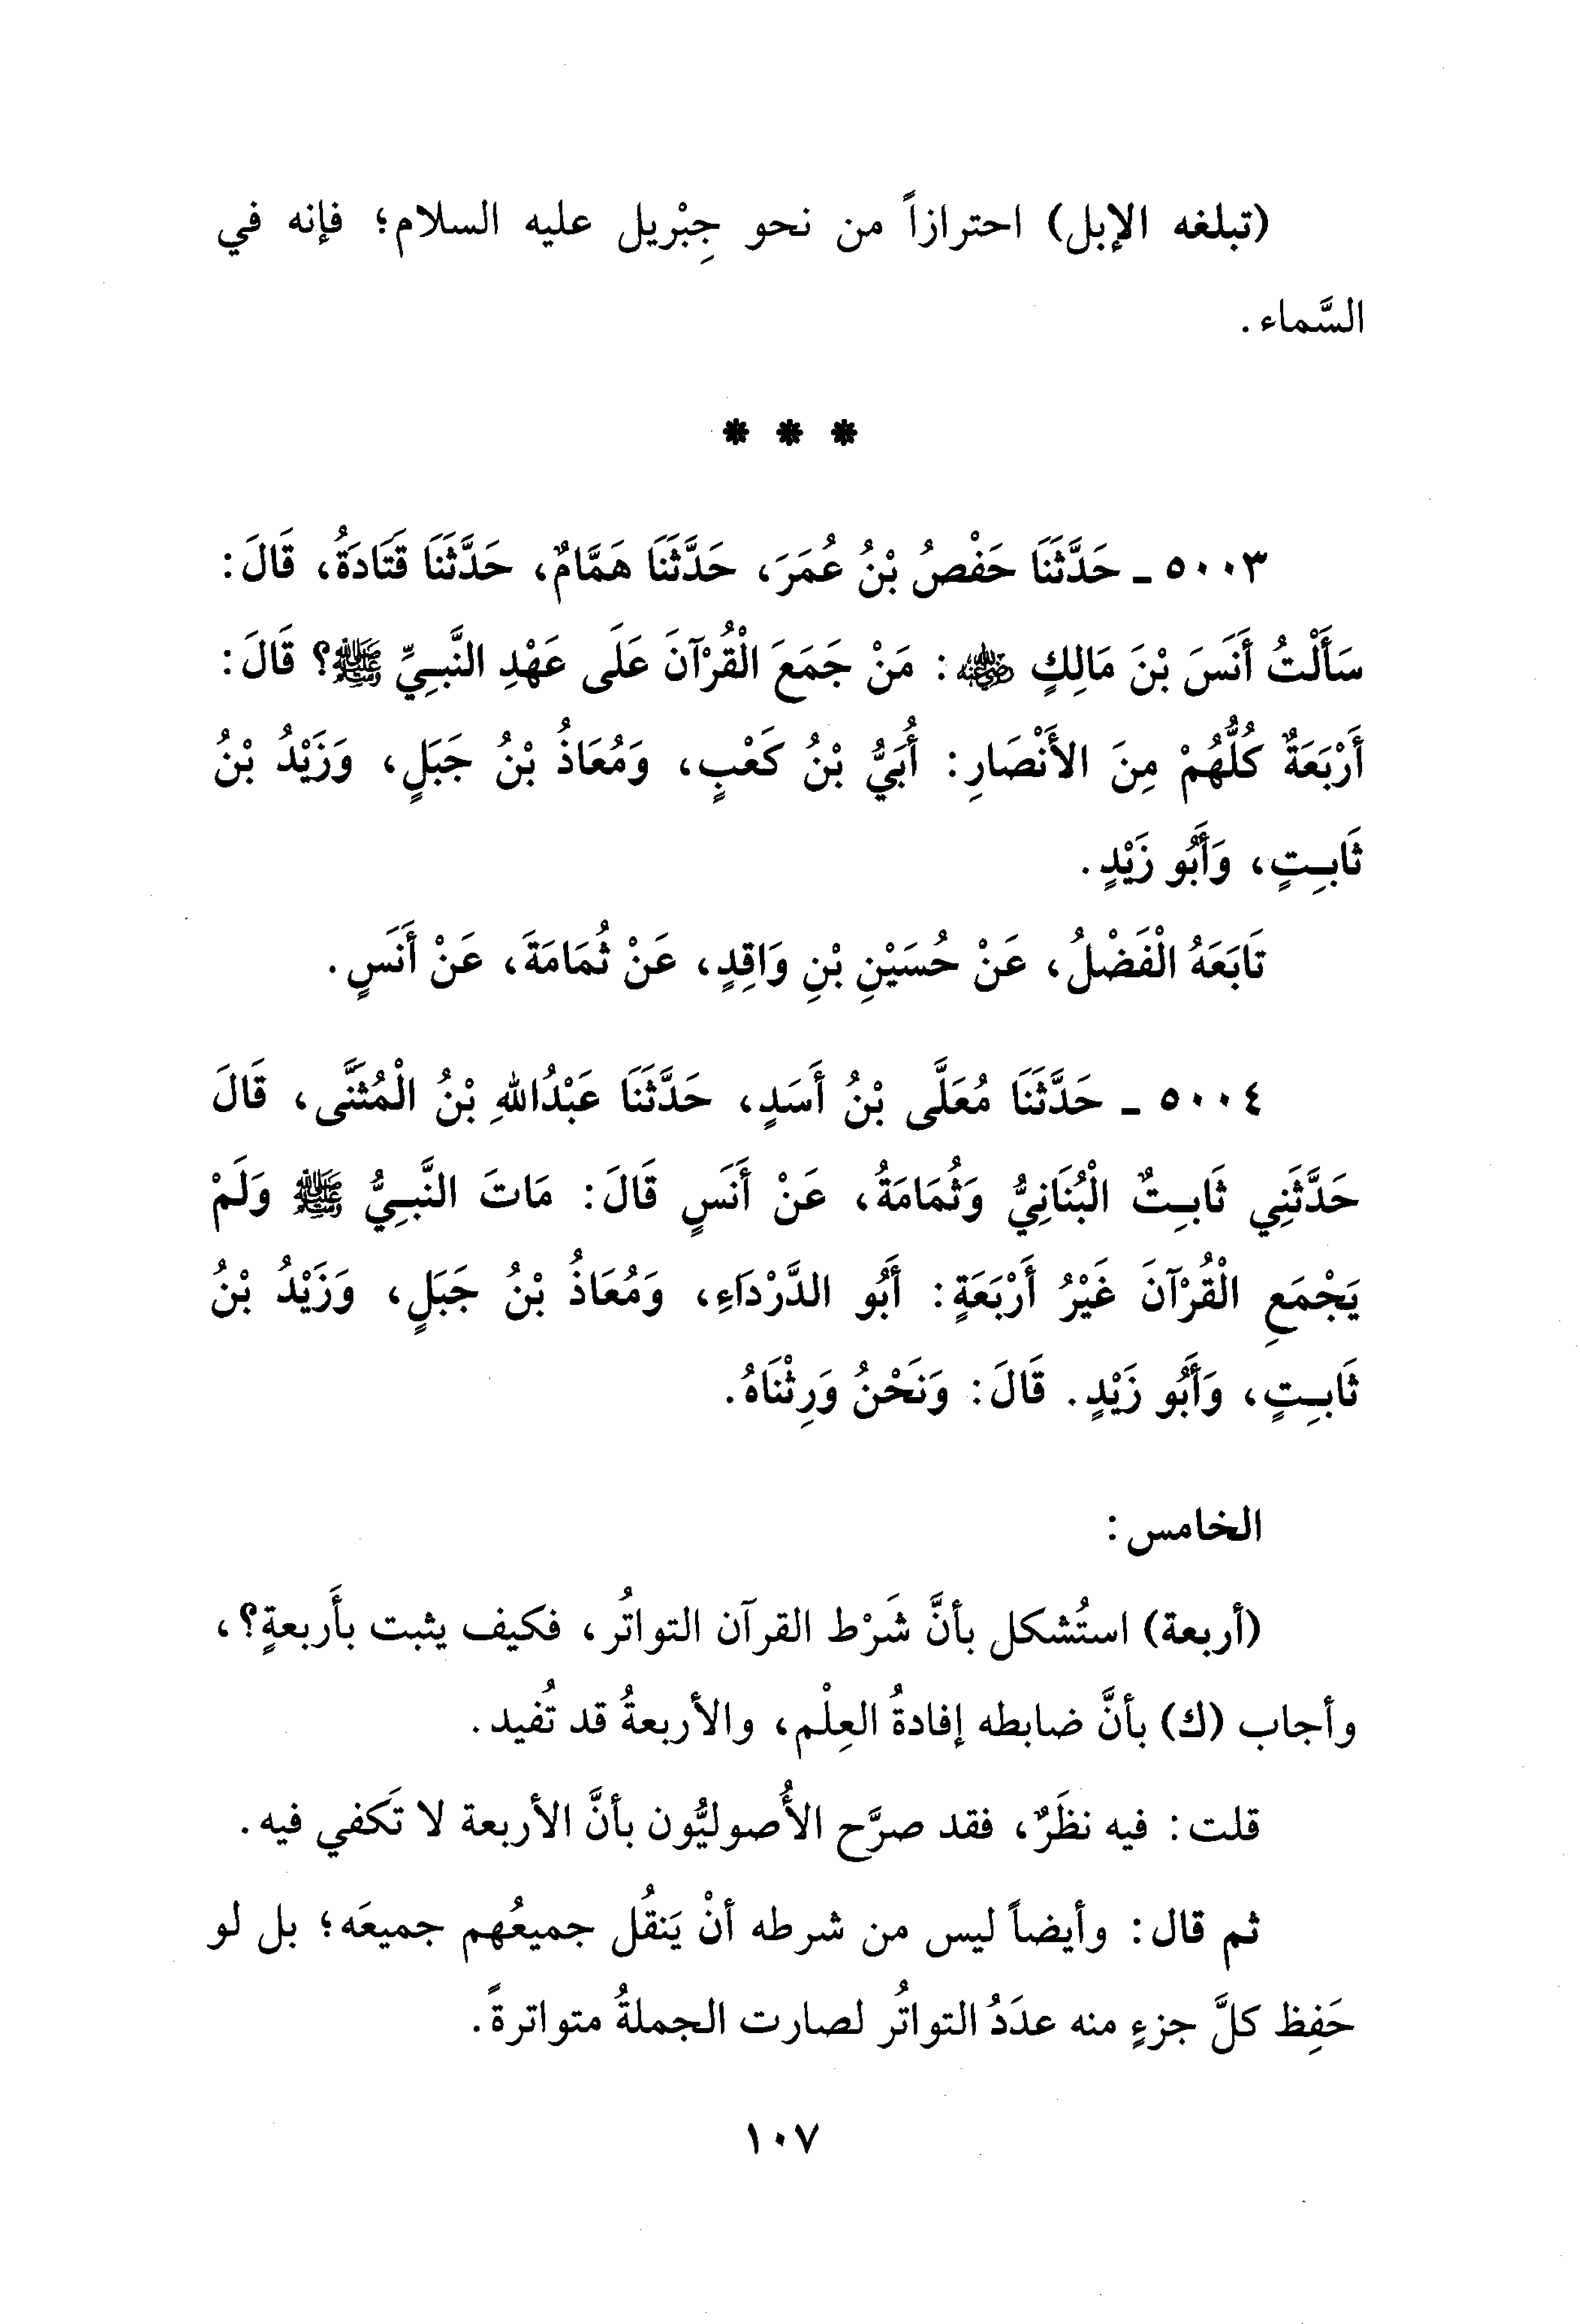 (تبلغه الإبل) احترازاً من نحو جِبْريل عليه السلام؛ فإنه في
السَّماء.
* * *
٥٠٠٣ - حَدَّثَنَا حَفْصُ بْنُ عُمَرَ، حَدَّثَنَا هَمَّامٌ، حَدَّثَنَا قَتَادَةُ، قَالَ:
سَأَلْتُ أَنَسَ بْنَ مَالِكٍ رضي الله عنه: مَنْ جَمَعَ الْقُرْآنَ عَلَى عَهْدِ النَّبِيِّ ﷺ؟ قَالَ:
أَرْبَعَةٌ كُلُّهُمْ مِنَ الأَنْصَارِ: أُبَيُّ بْنُ كَعْبٍ، وَمُعَاذُ بْنُ جَبَلٍ، وَزَيْدُ بْنُ
ثَابِتٍ، وَأَبُو زَيْدٍ.
تَابَعَهُ الْفَضْلُ، عَنْ حُسَيْنِ بْنِ وَاقِدٍ، عَنْ ثُمَامَةَ، عَنْ أَنَسٍ.
٥٠٠٤ - حَدَّثَنَا مُعَلَّى بْنُ أَسَدٍ، حَدَّثَنَا عَبْدُاللهِ بْنُ الْمُثَنَّى، قَالَ
حَدَّثَنِي ثَابِتٌ الْبُنَانِيُّ وَثُمَامَةُ، عَنْ أَنَسٍ قَالَ: مَاتَ النَّبِيُّ ﷺ وَلَمْ
يَجْمَعِ الْقُرْآنَ غَيْرُ أَرْبَعَةٍ: أَبُو الدَّرْدَاءِ، وَمُعَاذُ بْنُ جَبَلٍ، وَزَيْدُ بْنُ
ثَابِتٍ، وَأَبُو زَيْدٍ. قَالَ: وَنَحْنُ وَرِثْنَاهُ.
الخامس:
(أربعة) استُشكل بأنَّ شَرْط القرآن التواتُر، فكيف يثبت بأَربعةٍ؟،
وأجاب (ك) بأنَّ ضابطه إفادةُ العِلْم، والأربعةُ قد تُفيد.
قلت: فيه نظَرٌ، فقد صرَّح الأُصوليُّون بأنَّ الأربعة لا تَكفي فيه.
ثم قال: وأيضاً ليس من شرطه أنْ يَنقُل جميعُهم جميعَه؛ بل لو
حَفِظ كلَّ جزءٍ منه عدَدُ التواتُر لصارت الجملةُ متواترةً.
١٠٧